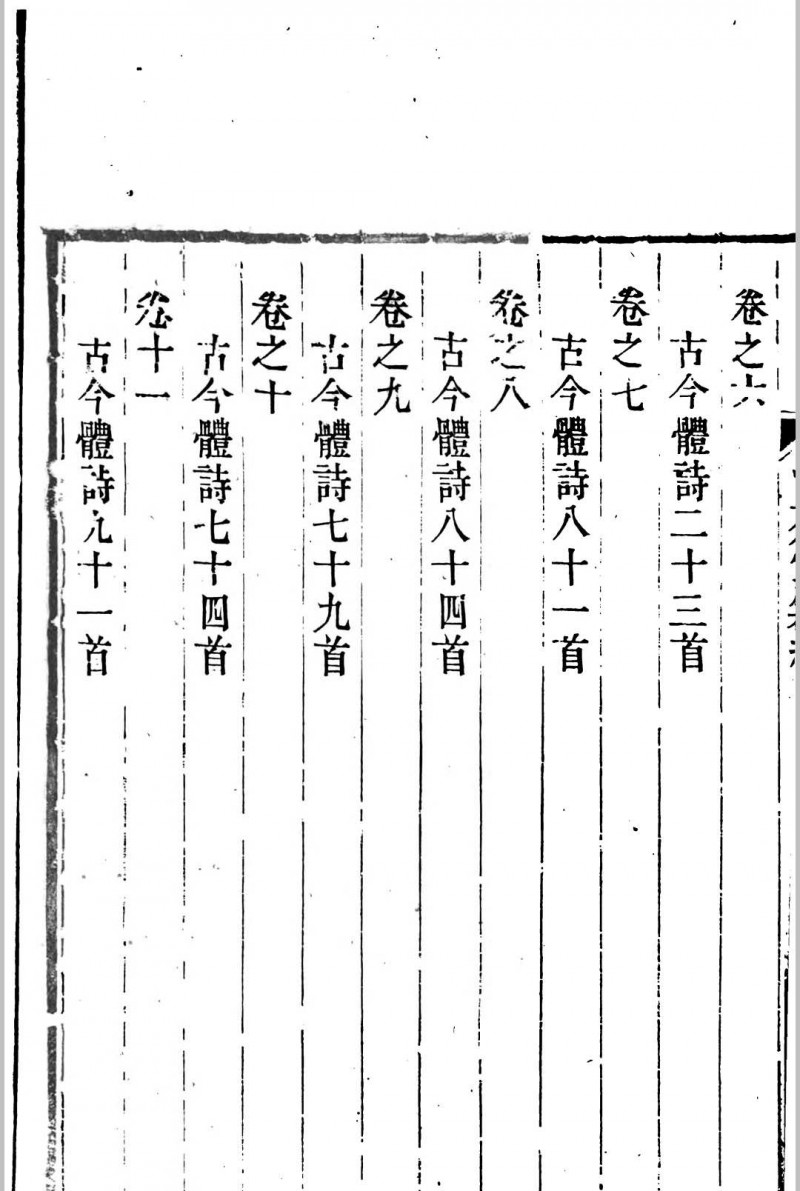 卷之六
古今體詩二十三首
卷之七
古今體詩八十一首
卷之八
古今體詩八十四首
卷之九
古今體詩七十九首
卷之十
古今體詩七十四首
卷十一
古今體詩九十一首